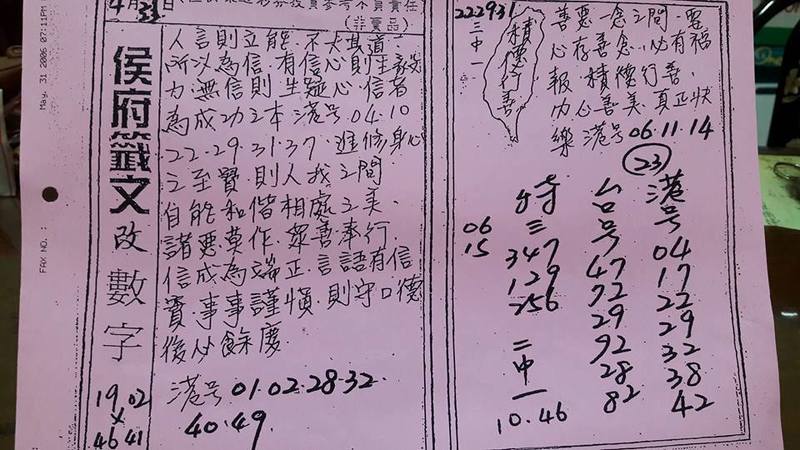 May. 31 2006 07:11PM
FAX NO. :
4月31日
參考不負責任
(非賣品)
侯府籤文
改數字
19 02
×
46 41
人言則立能.不失其道.
所以為信.有信心則生毅
力.無信則生疑心.信者
為成功之本 港号.04.10
22.29.31.37.進修身心
之至寶則人我之間
自能和偕相處之美.
諸惡莫作.眾善奉行.
信成為端正.言語有信
實.事事謹慎.則守口德
後必餘慶.
港号.01.02.28.32.
40.49.
222931
三中一
積德行善
善惡一念之間.
心存善念.必有福
報.積德行善.
內心善美.真正快
樂 港号06.11.14
23
港号
04
17
22
29
32
38
42
台号
47
72
29
92
28
82
特三
347
129
256
二中一
10.46
06
15